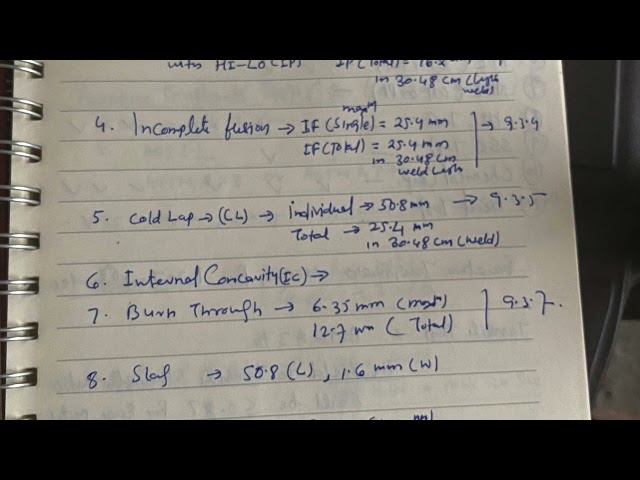 with HI-LO (IP) IP (Total) =
in 30.48 cm (
weld)
4. Incomplete fusion → IF (Single) = 25.4 mm → 9.3.4
IF (Total) = 25.4 mm
in 30.48 cm
weld
5. Cold Lap → (CL) → individual → 50.8 mm → 9.3.5
Total → 25.4 mm
in 30.48 cm (weld)
6. Internal Concavity (IC) →
7. Burn Through → 6.35 mm ( 9.3.7.
12.7 mm (Total)
8. Slag → 50.8 (L), 1.6 mm (W)